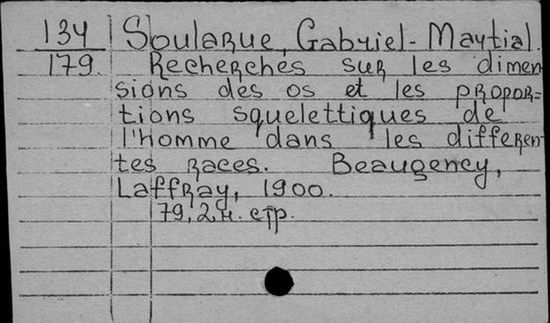 134 Soularue, Gabriel-Martial.
179. Recherches sur les dimen
sions des os et les propor=
tions squelettiques de
l'homme dans les differen
tes races. Beaugency,
Laffray, 1900.
79, 2 н. стр.